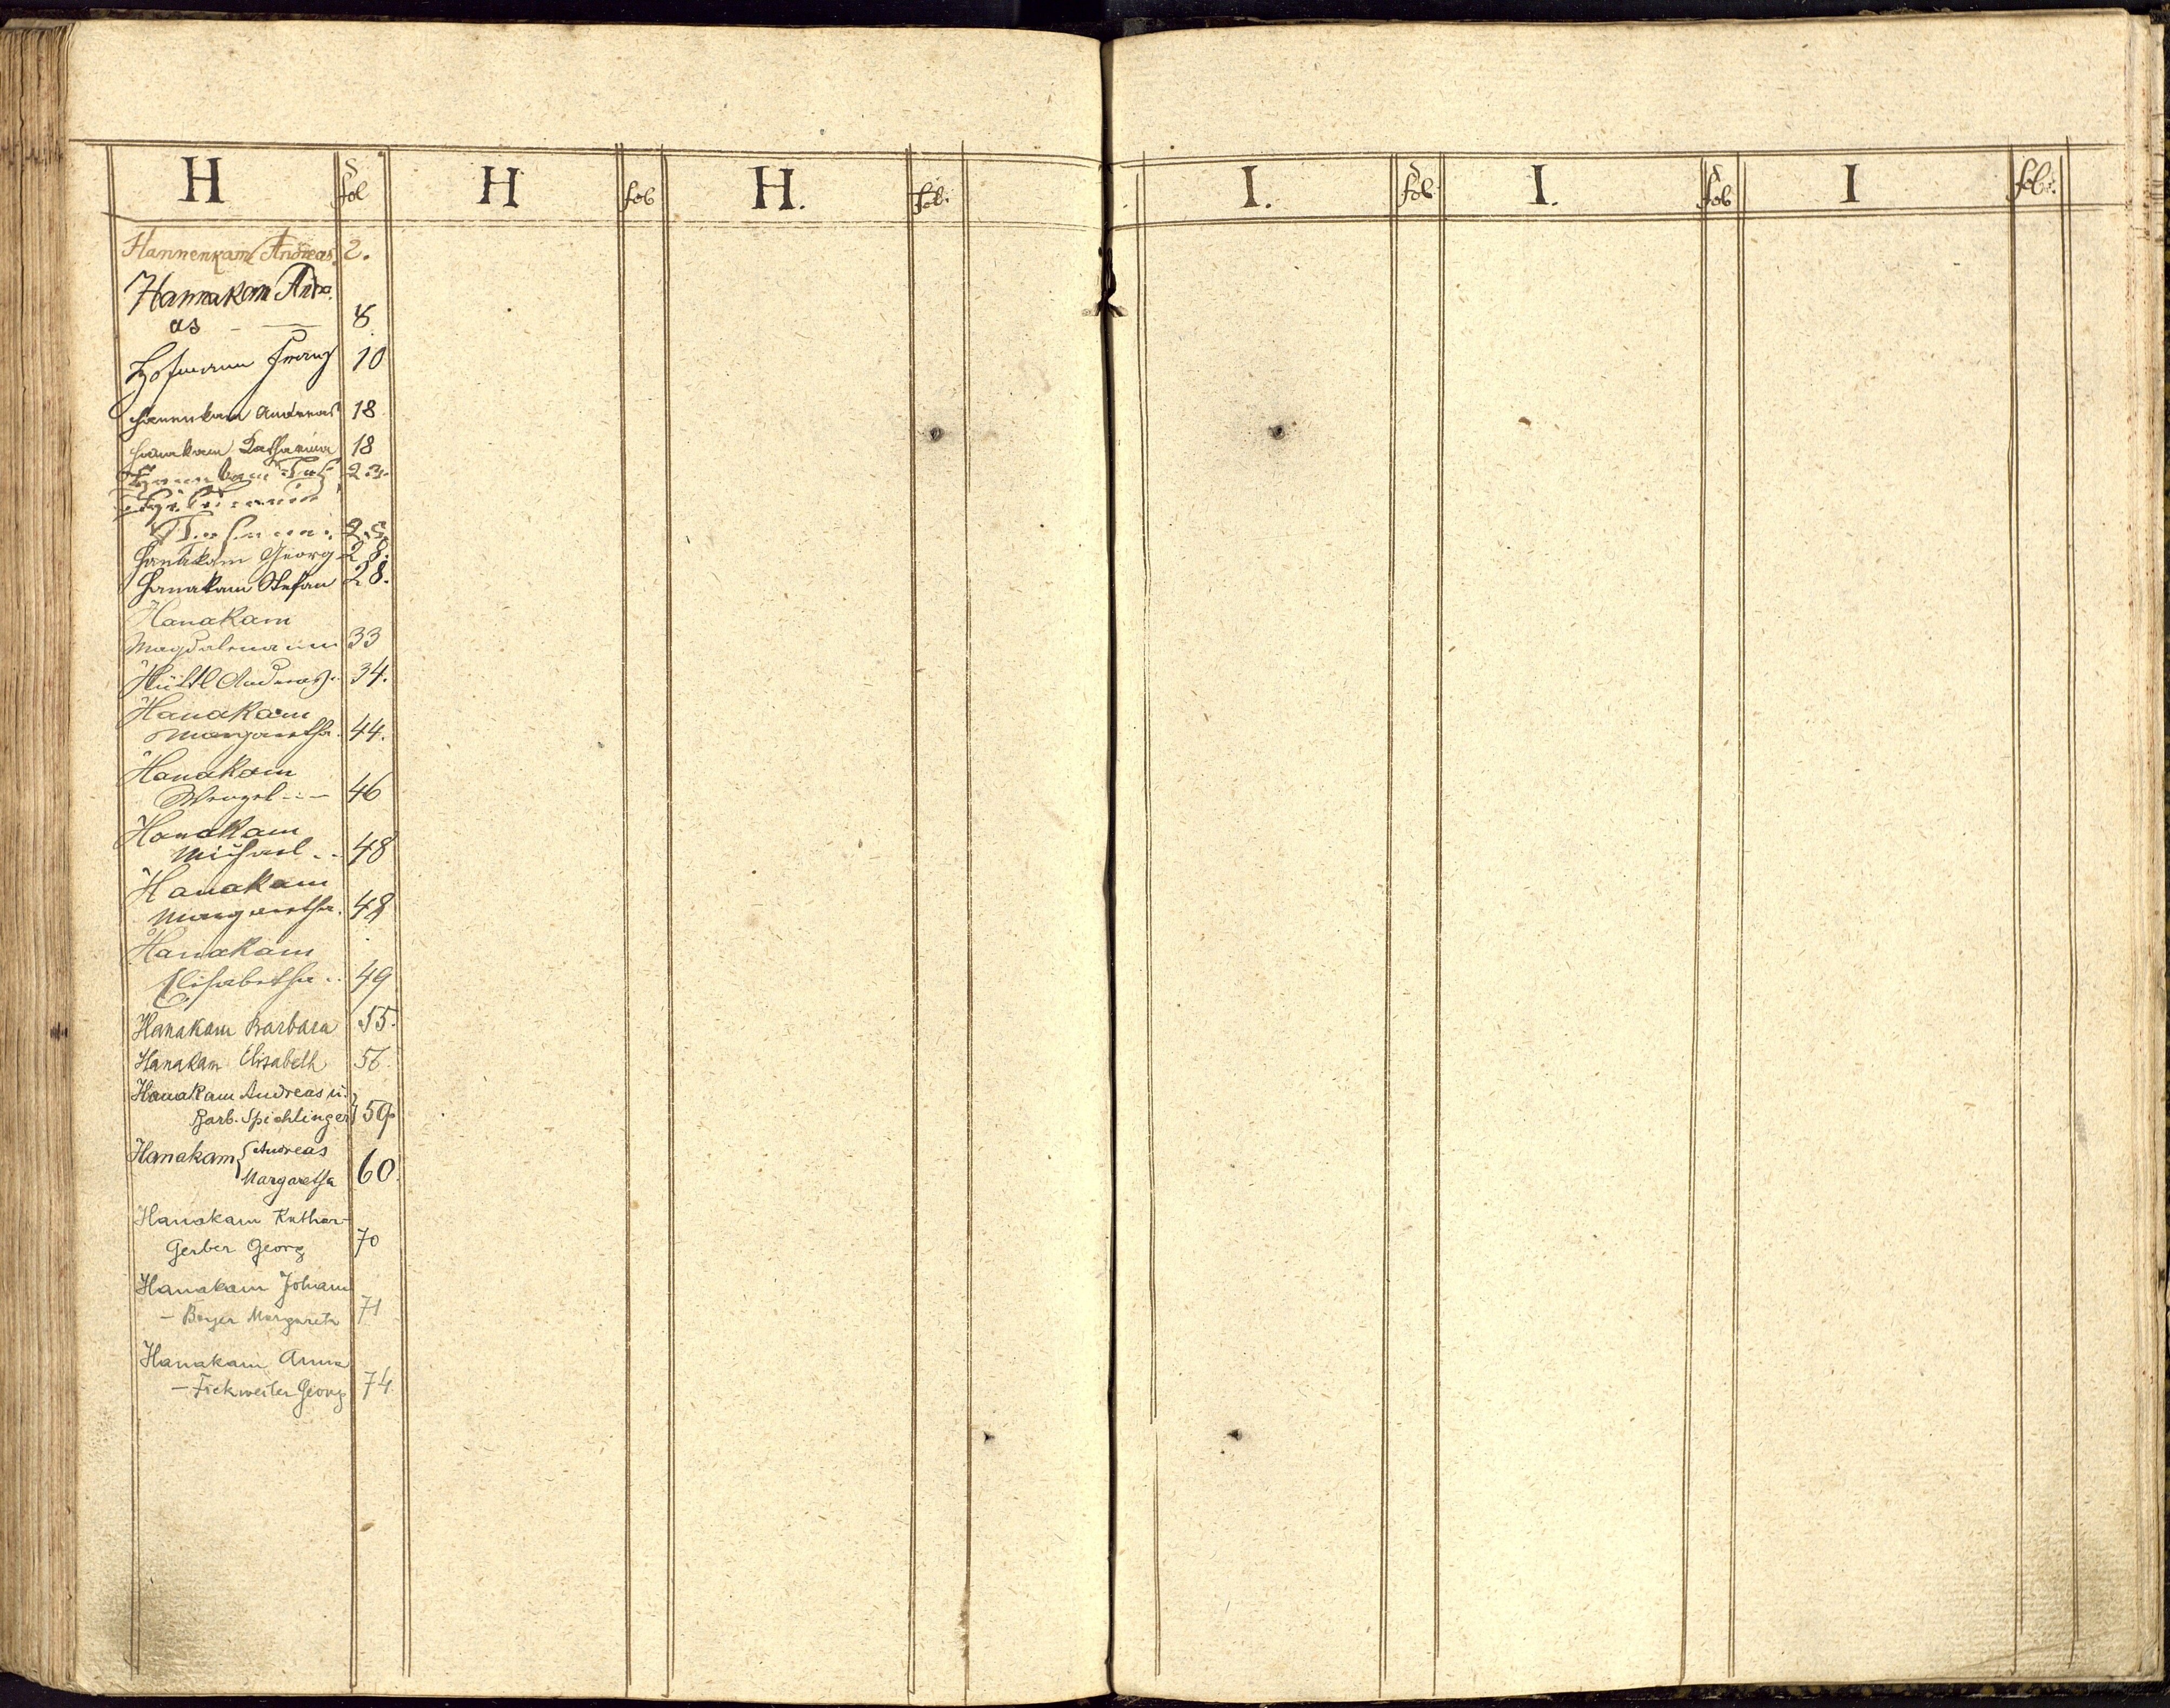 H fol H fol H. fol.
Hannenkam Andreas 2.
Hannakam Andre
as - — 8.
Hofmann Franz 10
Hanenkam Andreas 18
Hanakam Katharina 18
Hannkam
25.
Hanakam Georg 28.
Hanakam Stefan 28.
Hanakam
Magdalena 33
Hüttl Andreas. 34.
Hanakam
Margaretha. 44.
Hanakam
Wenzel 46
Hanakam
Michael 48
Hanakam
Margaretha. 48
Hanakam
Elisabetha 49
Hanakam Barbara 55.
Hanakam Elisabeth 56.
Hanakam Andreas u.
Barb. Spichlinger } 59
Hanakam { Andreas
Margaretha 60.
Hanakam Kathar-
Gerber Georg 70
Hanakam Johann
- Bayer Margareta 71
Hanakam Anna
- Fickweiler Georg 74.
I. fol I. fol I fol.